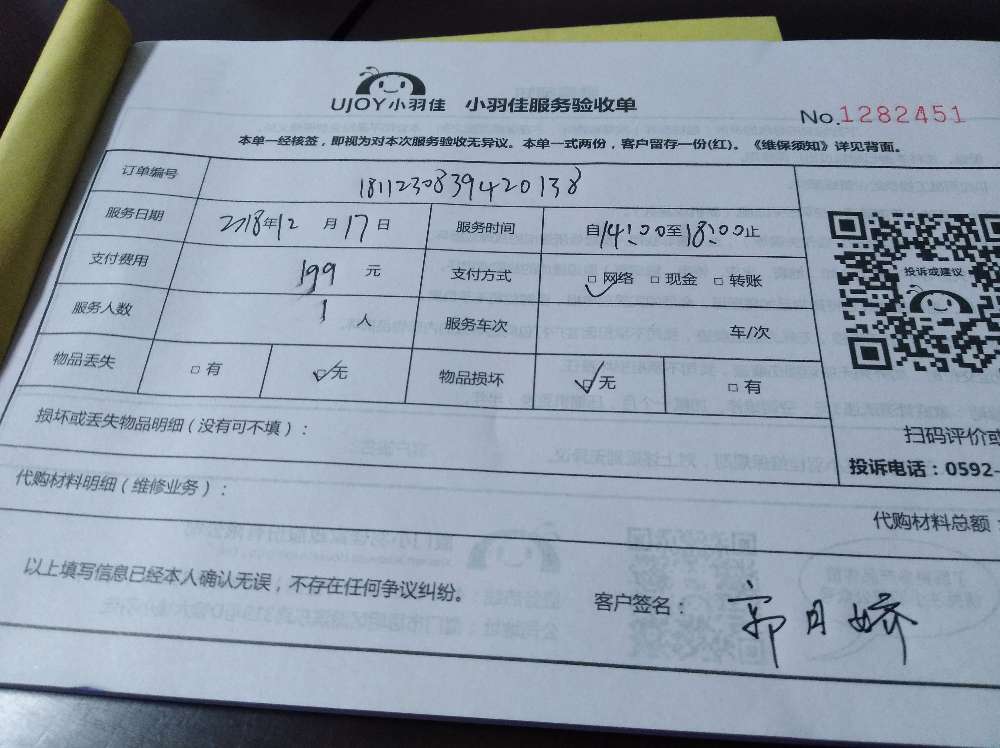 UJOY小羽佳 小羽佳服务验收单
No.1282451
本单一经核签，即视为对本次服务验收无异议。本单一式两份，客户留存一份(红)。《维保须知》详见背面。
订单编号 1811230839420138
服务日期 2018年12月17日 服务时间 自14:00至18:00止
支付费用 199元 支付方式 □网络 □现金 □转账
服务人数 1人 服务车次 车/次
物品丢失 □有 □无 物品损坏 □无 □有
投诉或建议
损坏或丢失物品明细(没有可不填)：
扫码评价或
投诉电话：0592-
代购材料明细(维修业务)：
代购材料总额：
以上填写信息已经本人确认无误，不存在任何争议纠纷。
客户签名： 郭月娇